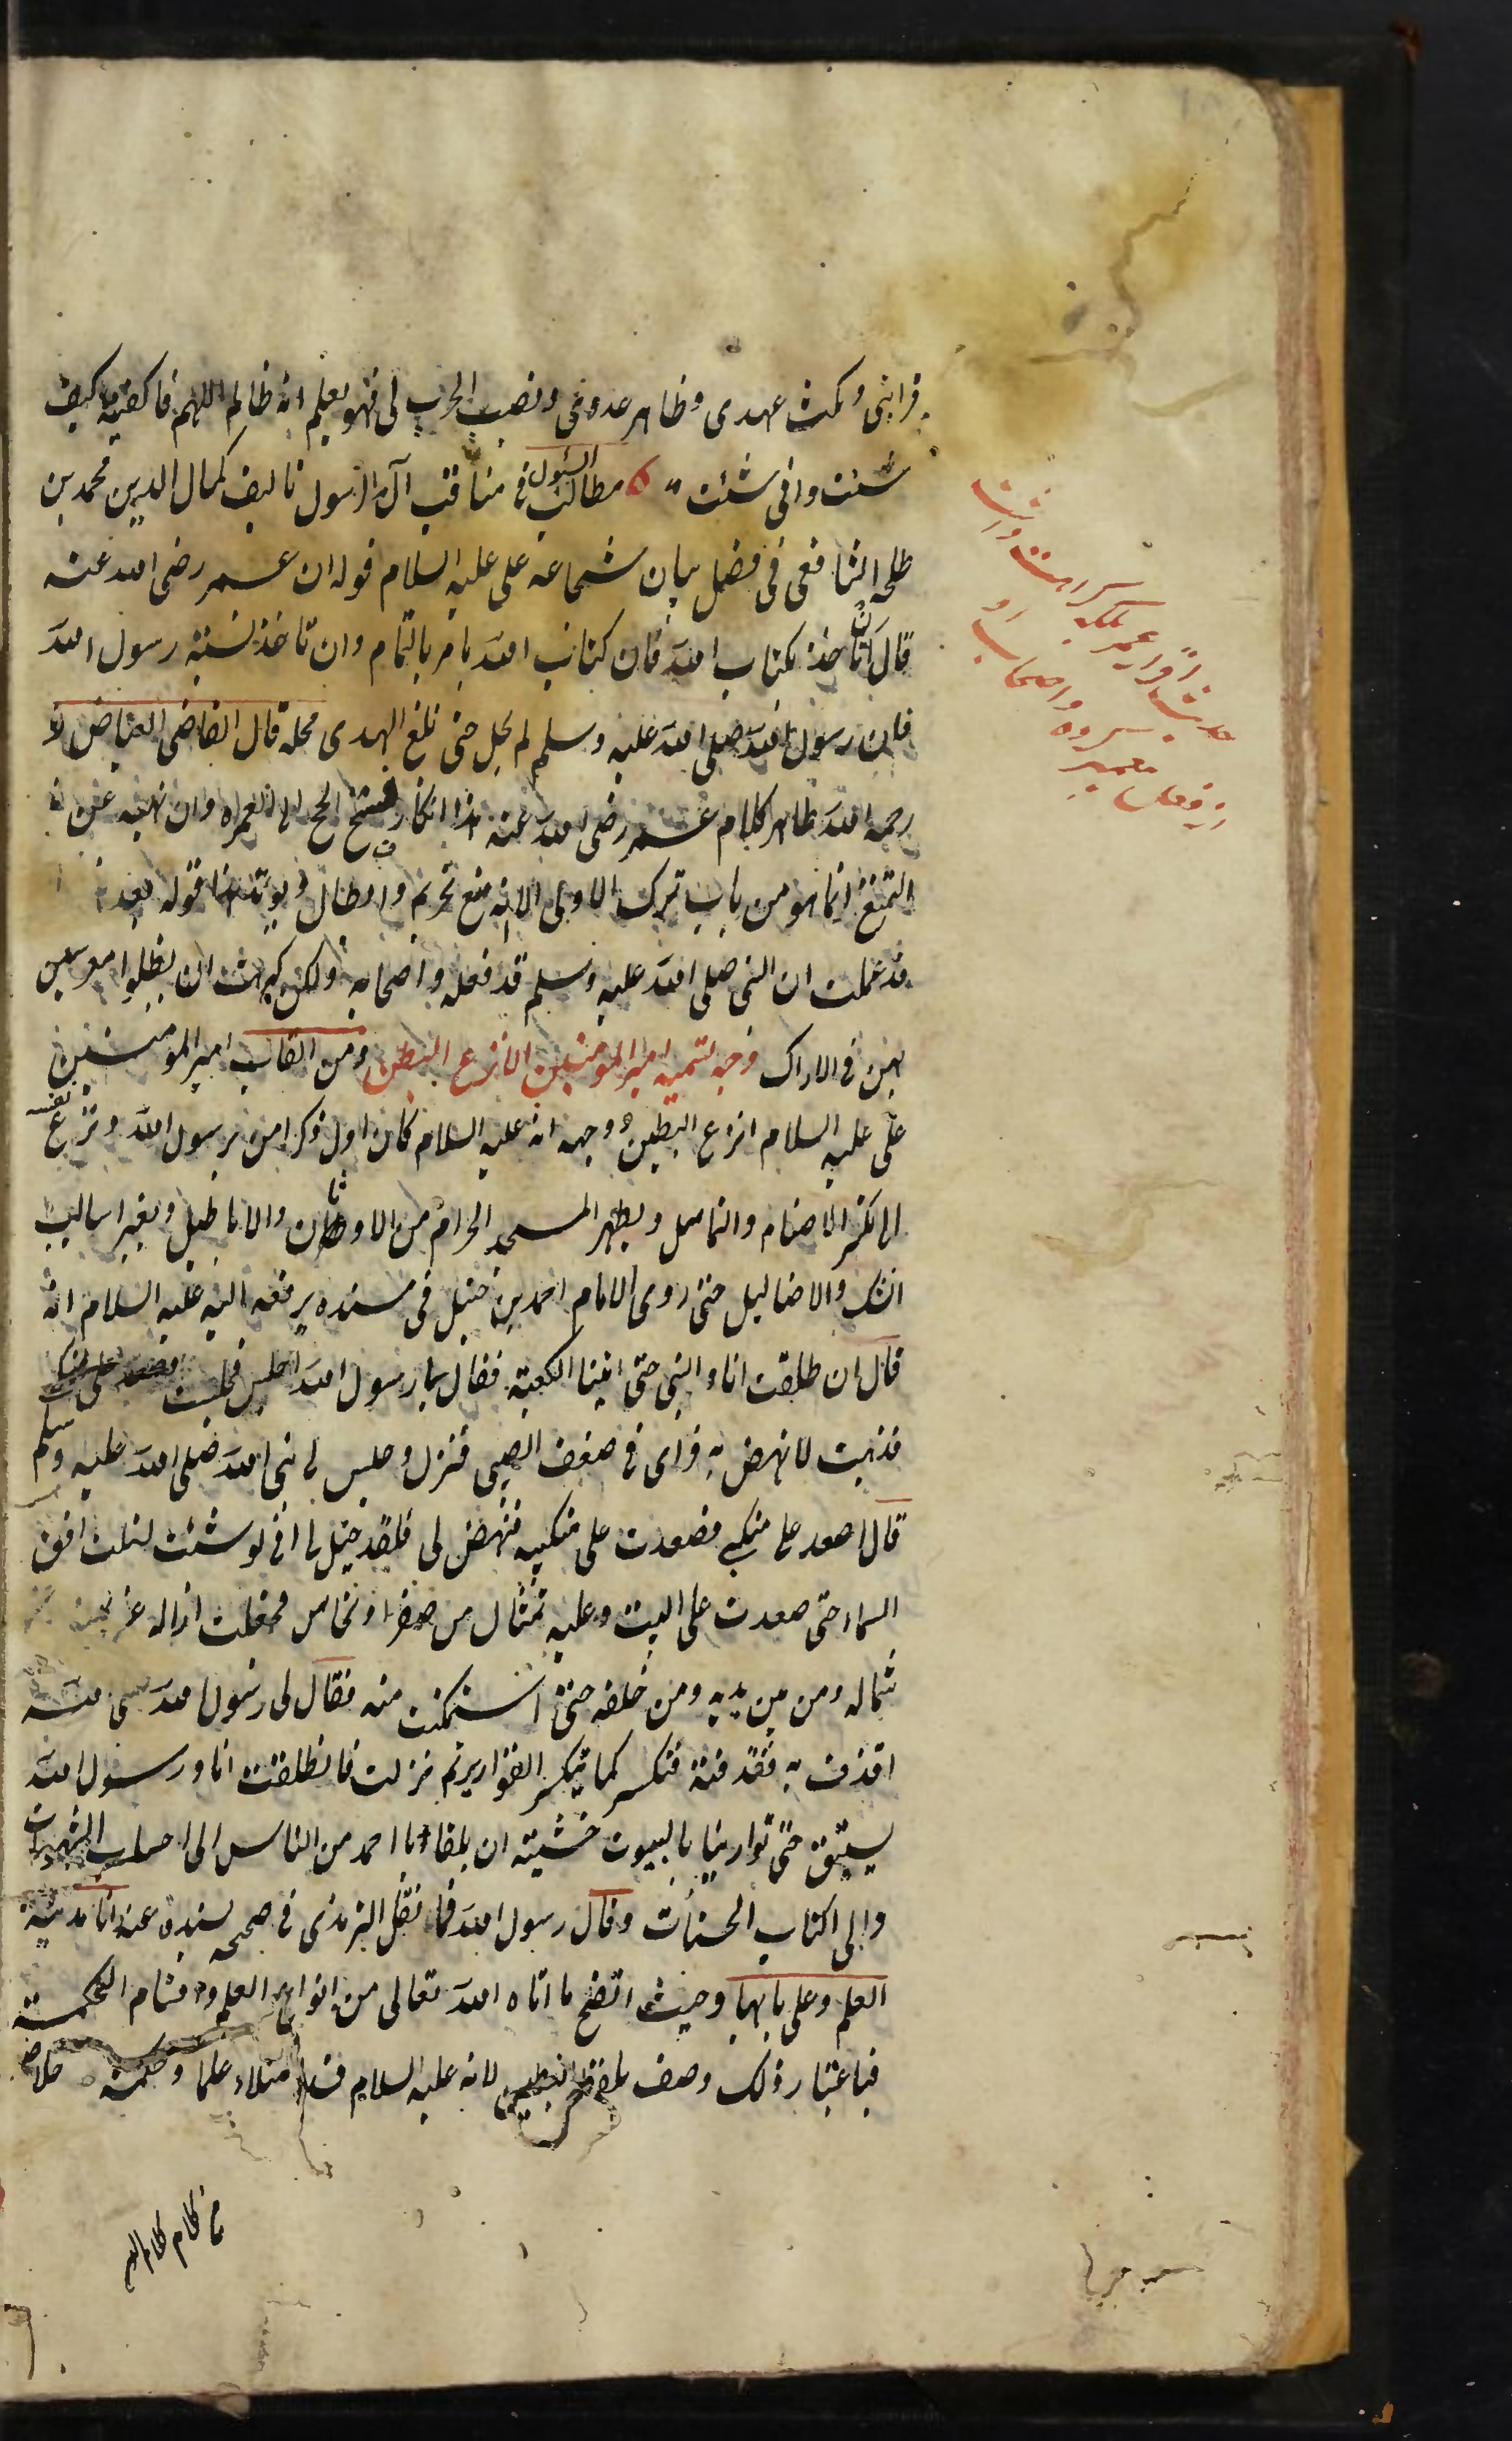 قرابتی ونکث عهدی وظاهر عدوی ونصب الحرب لی فهو یعلم انه ظالم اللهم فاکفنیه کیف
شئت وانی شئت مطالب السئول فی مناقب آل الرسول تالیف کمال الدین محمد بن
طلحه الشافعی فی فضل بیان شجاعه علی علیه السلام قوله ان عمر رضی الله عنه
قال ان تاخذ بکتاب الله فان کتاب الله یامر بالتمام وان تاخذ بسنة رسول الله
فان رسول الله صلی الله علیه وسلم لم یحل حتی بلغ الهدی محله قال القاضی العیاض
رحمه الله ظاهر کلام عمر رضی الله عنه هذا انکار فسخ الحج الی العمره وان نهیه عن
التمتع انما هو من باب ترک الاولی لا انه منع تحریم وابطال ویوید هذا قوله بعد
قد علمت ان النبی صلی الله علیه وسلم قد فعله واصحابه ولکن کرهت ان یظلوا معرسین
بهن فی الاراک وجه تسمیه امیر المومنین الانزع البطین ومن القاب امیر المومنین
علی علیه السلام انزع البطین ووجهه انه علیه السلام کان اول ذکر امن برسول الله ونزع نفسه
الی تکسر الاصنام والتماثیل ویطهر المسجد الحرام من الاوثان والاباطیل ویغیر اسالیب
الشک والاضالیل حتی روی الامام احمد بن حنبل فی مسنده یرفعه الیه علیه السلام انه
قال انطلقت انا والنبی حتی اتینا الکعبة فقال یا رسول الله اجلس فجلست فصعد علی منکبی
فذهبت لانهض به فرای فی ضعف الصبی فنزل وجلس لی نبی الله صلی الله علیه وسلم
قال اصعد علی منکبی فصعدت علی منکبیه فنهض لی فلقد خیل لی انی لو شئت لنلت افق
السماء حتی صعدت علی البیت وعلیه تمثال من صفر او نحاس فجعلت ازاله عن یمینه
شماله ومن بین یدیه ومن خلفه حتی استمکنت منه فقال لی رسول الله
اقذف به فقذفته فتکسر کما یتکسر القواریر ثم نزلت فانطلقت انا ورسول الله
یستبق حتی توارینا بالبیوت خشیته ان یلقانا احد من الناس الی
والی اکتاب الحسنات وقال رسول الله فما نقل الترمذی فی صحیحه بسنده عنه انا مدینة
العلم وعلی بابها وحیث اتضح ما اتاه الله تعالی من انواع العلم واقسام الحکمة
فباعتبار ذلک وصف بلفظ البطین لانه علیه السلام قد امتلاء علما وحکمة